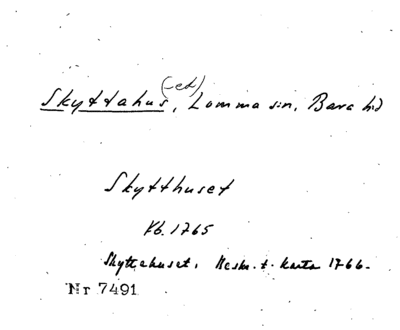 Skyttahus (-et), Lomma sn, Bara hd
Skytthuset
Kb. 1765
Skyttehuset. Beskr. t. karta 1766.
Nr 7491